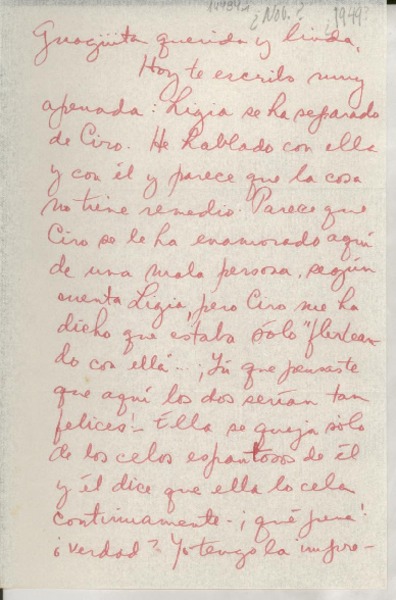 ¿Nov.? ¿1949?
Guagüita querida y linda,
Hoy te escribo muy
apenada: Ligia se ha separado
de Ciro. He hablado con ella
y con él y parece que la cosa
no tiene remedio. Parece que
Ciro se le ha enamorado aquí
de una mala persona, según
cuenta Ligia, pero Ciro me ha
dicho que estaba sólo "flirtean-
do con ella"... ¡Tú que pensaste
que aquí los dos serían tan
felices! - Ella se queja sólo
de los celos espantosos de él
y él dice que ella lo cela
continuamente. ¡qué pena!
¿verdad? Yo tengo la impre-